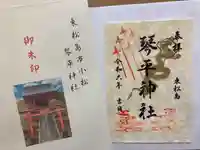 奉拝
東松島
琴平神社
令和六年 吉日
東松島市小松
琴平神社
御朱印